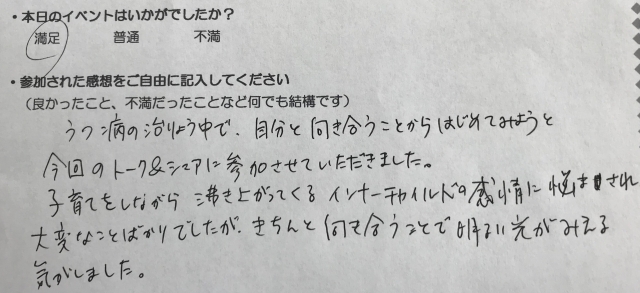 ・本日のイベントはいかがでしたか?
満足 普通 不満
・参加された感想をご自由に記入してください
（良かったこと、不満だったことなど何でも結構です）
うつ病の治りょう中で、自分と向き合うことからはじめてみようと
今回のトーク&シェアに参加させていただきました。
子育てをしながら沸き上がってくるインナーチャイルドの感情に悩まされ
大変なことばかりでしたが、きちんと向き合うことで明るい光がみえる
気がしました。